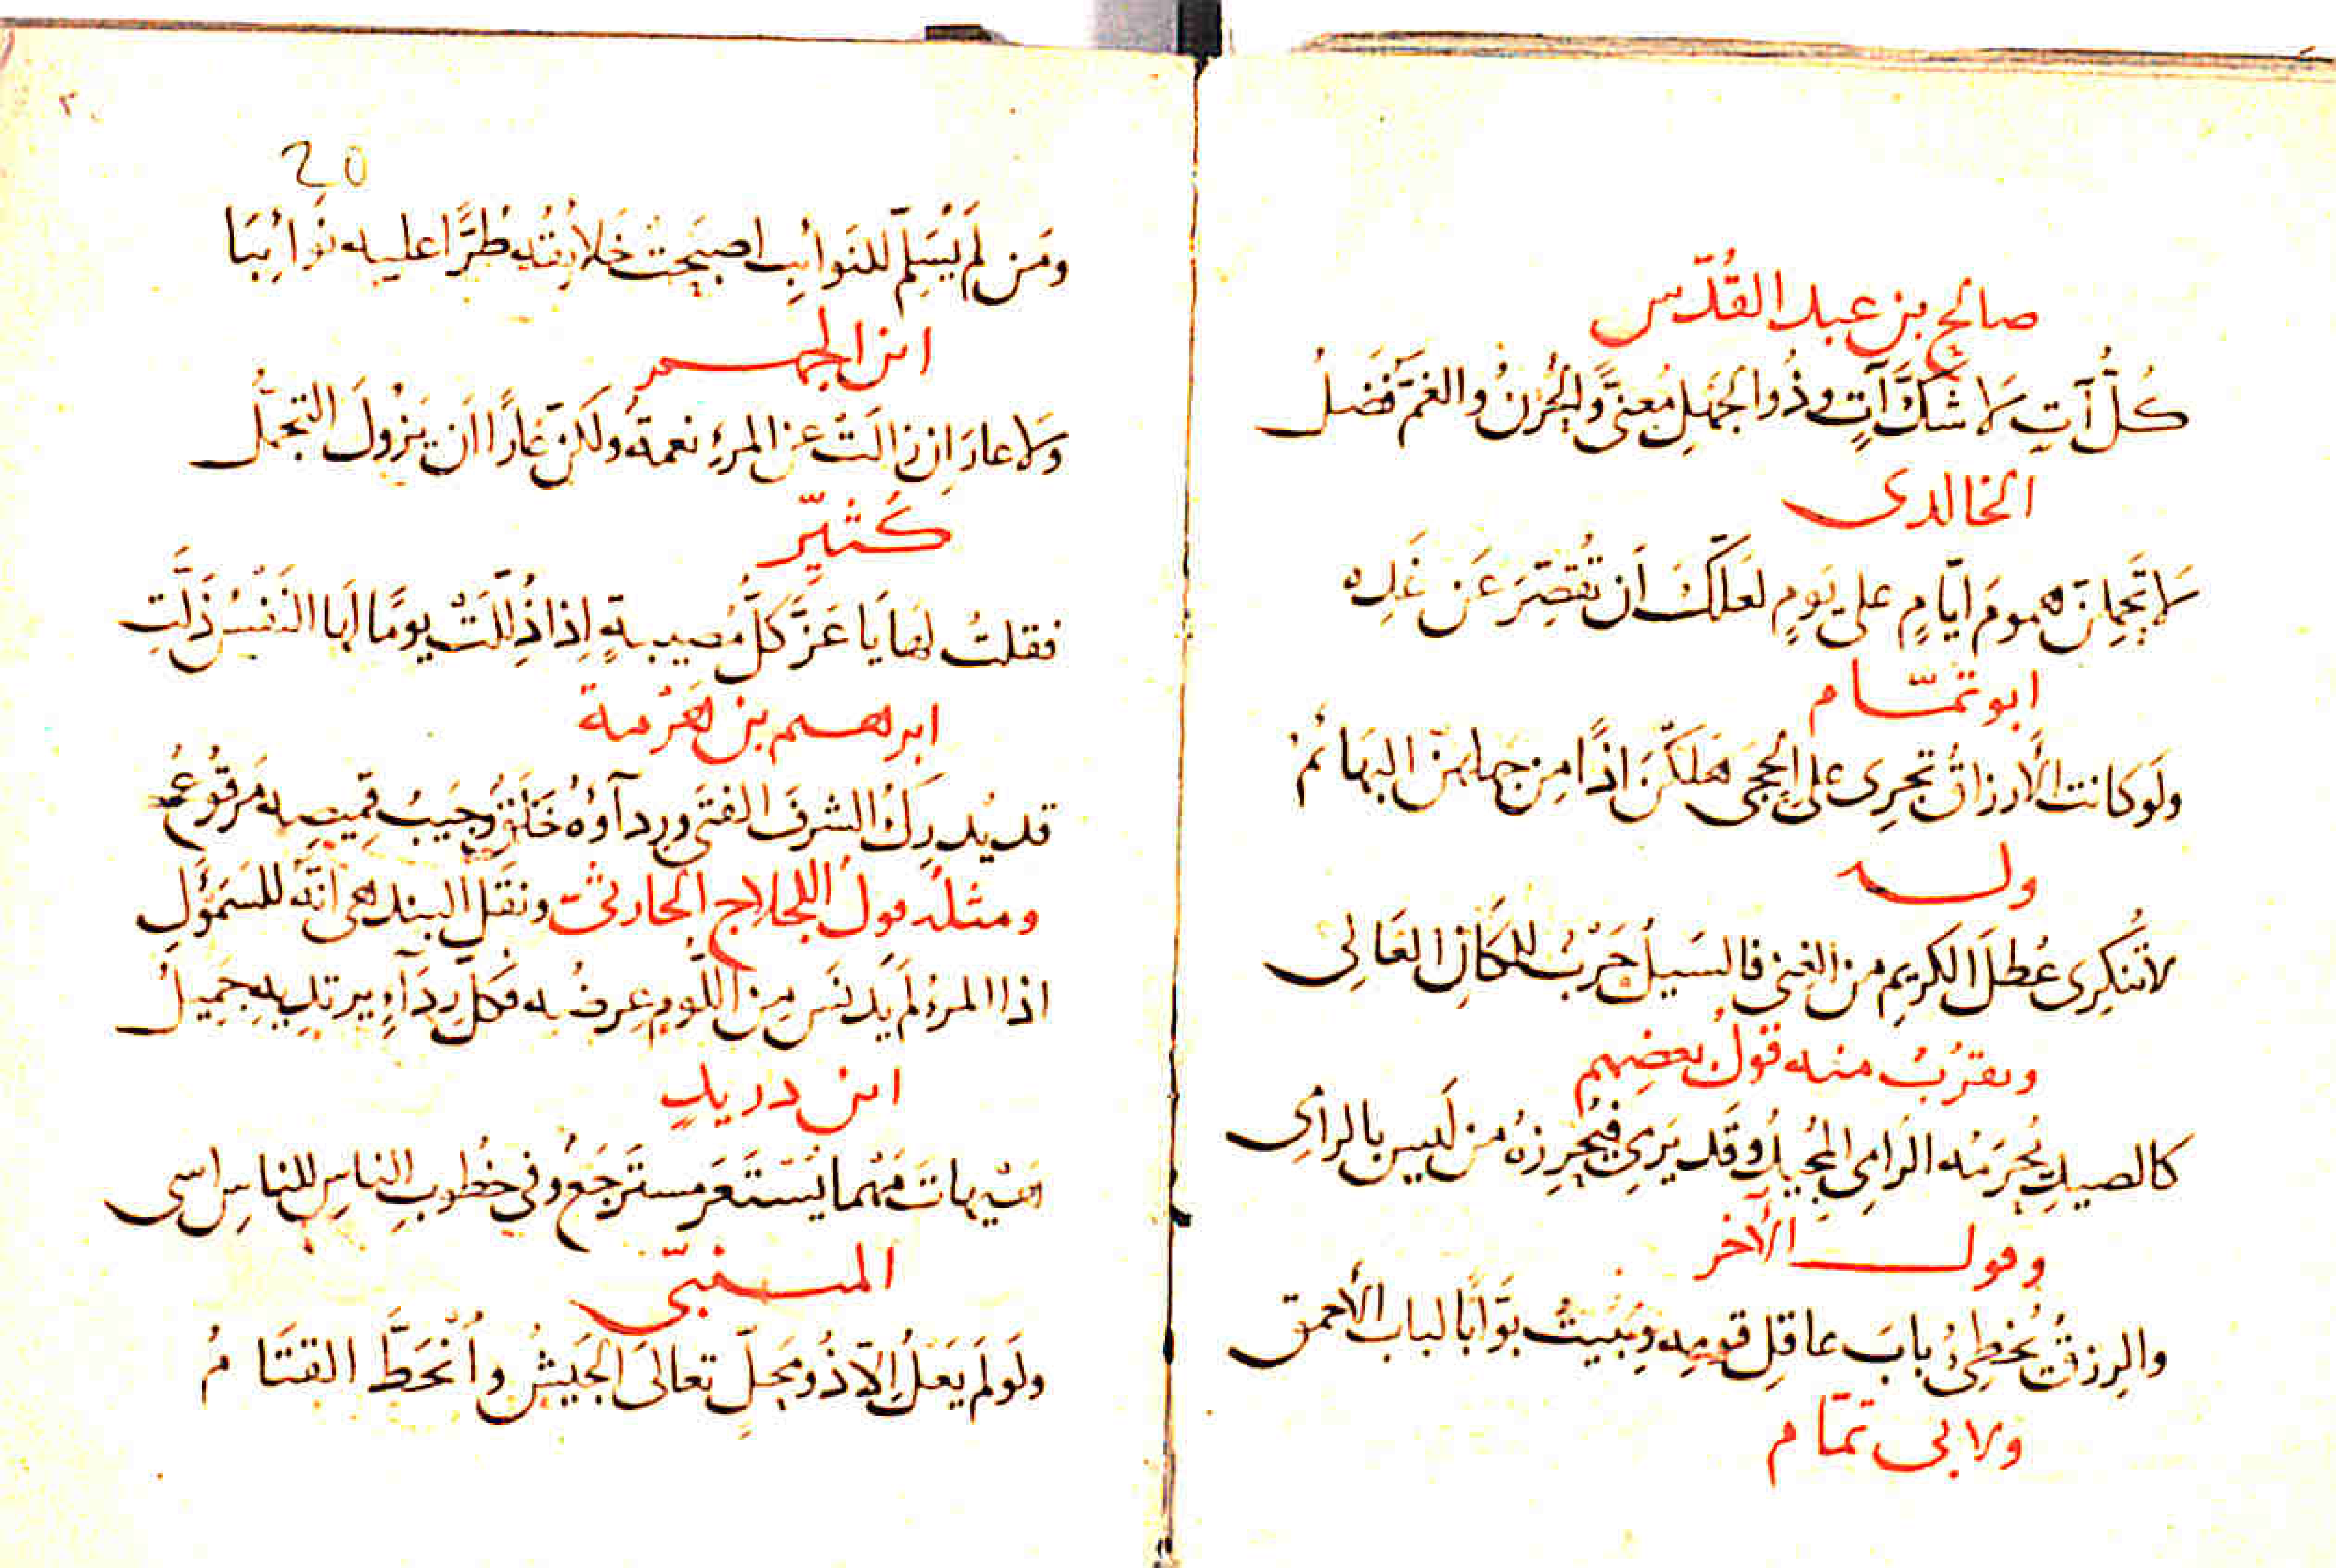 صالح بن عبد القُدّس
كُلُّ آتٍ لا شكَّ آتٍ وذُو الجهَلِ مُعنىًّ والحُزنُ والغمُّ فَضلُ
الخالدى
لا تَحمِلنَّ همومَ ايّامٍ على يَومٍ لعَلّكَ اَن تُقصِّرَ عَن غَدِه
ابو تمّام
ولَو كانت الأرزاقُ تجرِى على الحِجَى هَلَكْنَ اذًا مِن جهلهنّ البَهائمُ
وله
لا تُنكِرِى عُطلَ الكَريمِ من الغِنى فالسَيلُ حَرْبٌ للمكَانِ العَالِى
ويقرُبُ منه قولُ بعضِهم
كالصيدِ يُحرَمُه الرَامِى المُجيدُ وقَد يَرمِى فيُحْرِزهُ مَن لَيسَ بالرامى
وقول الآخر
والرِزقُ يُخطِىُ بابَ عاقِلِ قومِه ويَبيتُ بَوّابًا لباب الأحمق
ولابى تمّام
٢٠
20
ومَن لَم يُسَلِّم للنَوائبِ اصبَحَت خَلائقُه طُرًّا عليه نَوائبَا
ابن الجهم
ولا عارَ اِن زالَتْ عن المرءِ نعمةٌ ولكنّ عَارًا اَن يَزُولَ التجمُّلُ
كُثيّر
فقلتُ لهَا يَا عَزَّ كلُّ مُصيبةٍ اِذا ذُلِّلَتْ يومًا لهَا النَفْسُ ذَلَّتِ
ابرهيم بن هَرْمة
قد يُدرِكُ الشرفَ الفتَى ورِدآؤهُ خَلَقٌ وجَيبُ قميصِه مَرقُوعُ
ومثلُه قولُ اللجلاج الحارثىّ ونقَلَ البيذهى انّه للسَمَؤَلِ
اذا المرءُ لَم يَدنَس مِنَ اللُّومِ عِرضُه فكلّ رِدَآءٍ يرتدِيهِ جَمِيلُ
ابن دريدٍ
هَيْهاتَ مَهْما يُسْتَعَر مستَرجَعٌ وفى خُطوبِ الناسِ للناسِ اسى
المتنبّى
ولَو لَم يَعْلُ اِلاّ ذُو مَحِلٍّ تعالَى الجَيشُ وانْحَطَّ القتَامُ